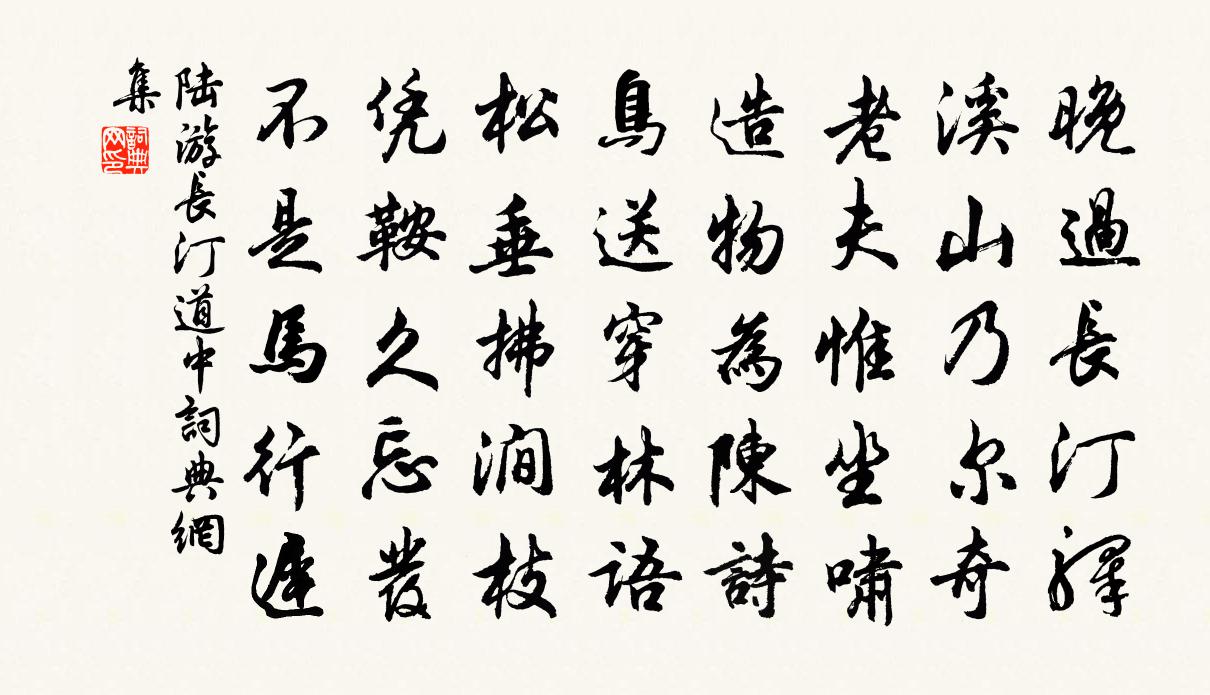 晚過長汀驛
溪山乃尔奇
老夫惟坐嘯
造物為陳詩
鳥送穿林語
松垂拂澗枝
凭鞍久忘發
不是馬行遲
陆游長汀道中詞典網
集
詞典网印